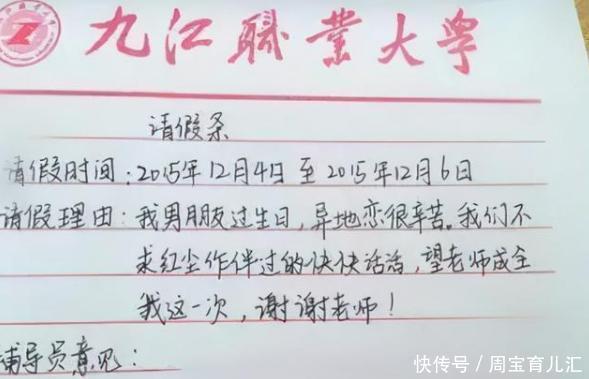 九江職業大学
请假条
请假时间:2015年12月4日至2015年12月6日
请假理由:我男朋友过生日,异地恋很辛苦。我们不
求红尘作伴过的快快活活,望老师成全
我这一次,谢谢老师!
辅导员意见:
快传号/周宝育儿汇